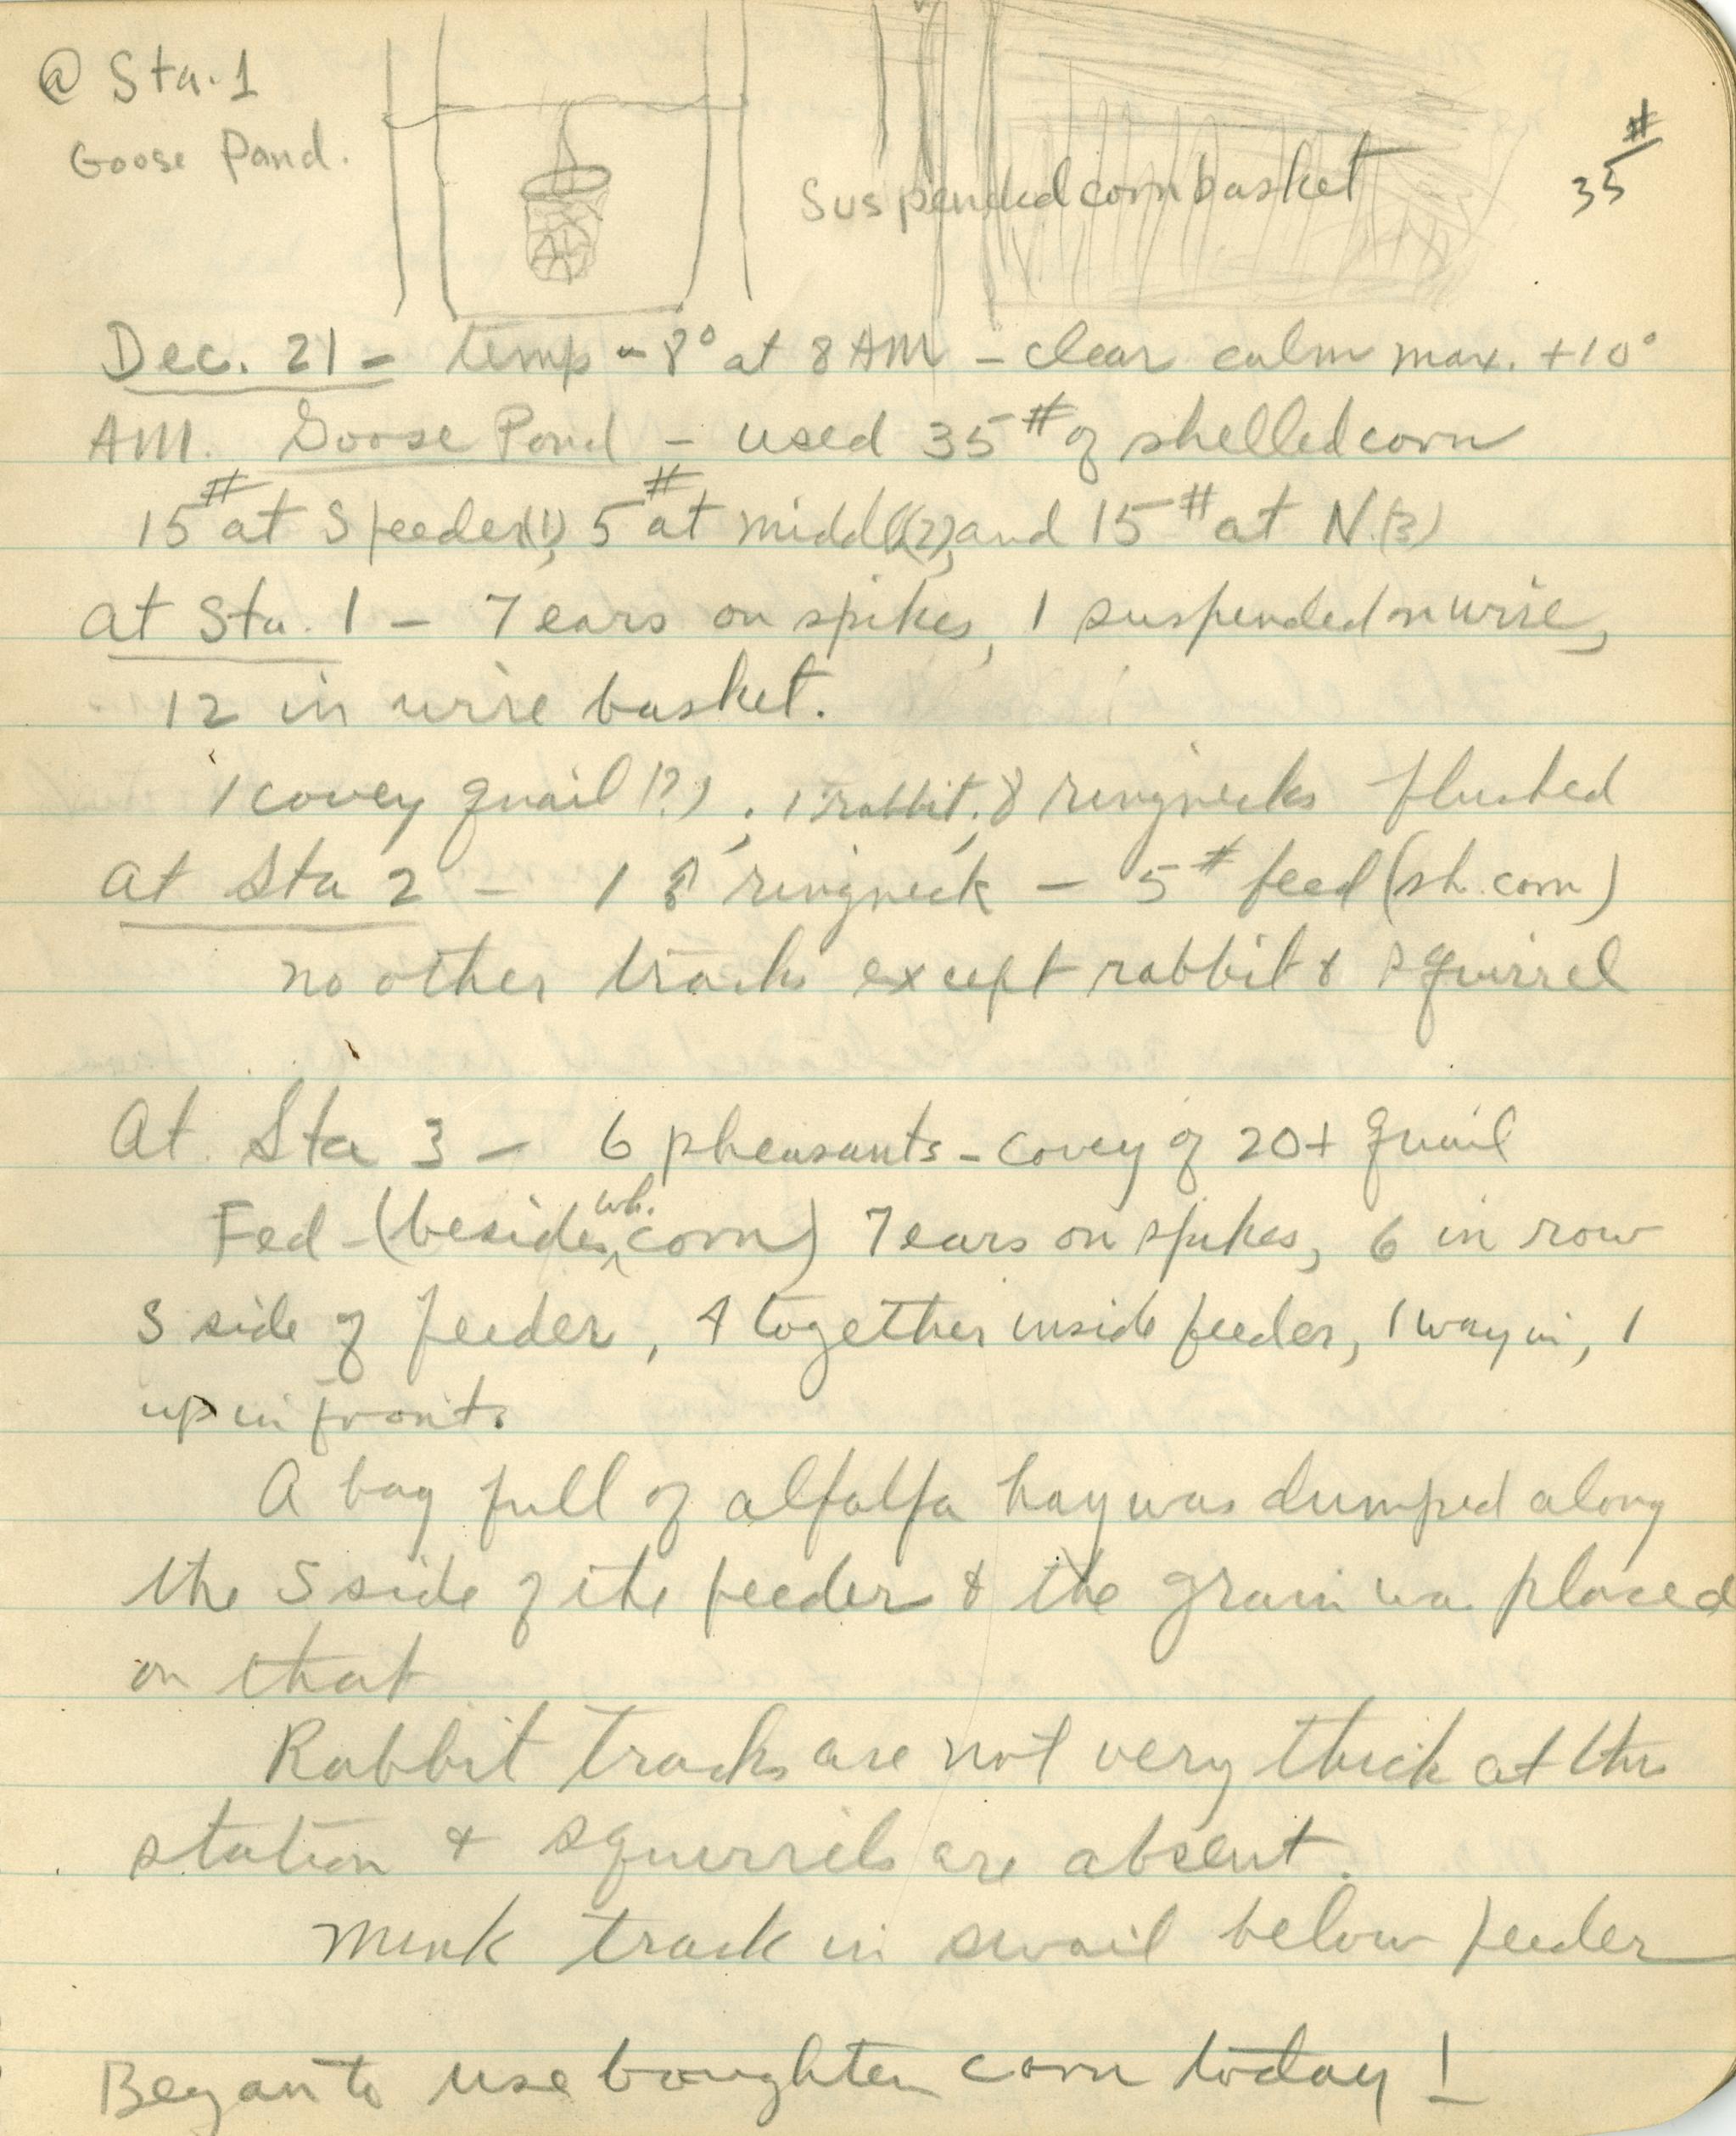 @ Sta. 1
Goose Pond.
Suspended corn basket
35#
Dec. 21 - temp - 8° at 8 AM - clear calm max. +10°
AM. Goose Pond - used 35# of shelled corn
15# at S feeder (1), 5# at middle (2), and 15# at N. (3)
at Sta. 1 - 7 ears on spikes, 1 suspended on wire,
12 in wire basket.
1 covey quail (?) ; 1 rabbit, 8 ringnecks flushed
at Sta 2 - 1 ringneck - 5# feed (sh. corn)
no other tracks except rabbit & squirrel
At Sta 3 - 6 pheasants - covey of 20+ quail
Fed - (besides wh. corn) 7 ears on spikes, 6 in row
S side of feeder, 4 together inside feeder, 1 way in, 1
up in front.
A bag full of alfalfa hay was dumped along
the S side of the feeder & the grain was placed
on that
Rabbit tracks are not very thick at this
station & squirrels are absent.
Mink track in swail below feeder
Began to use boughten corn today!